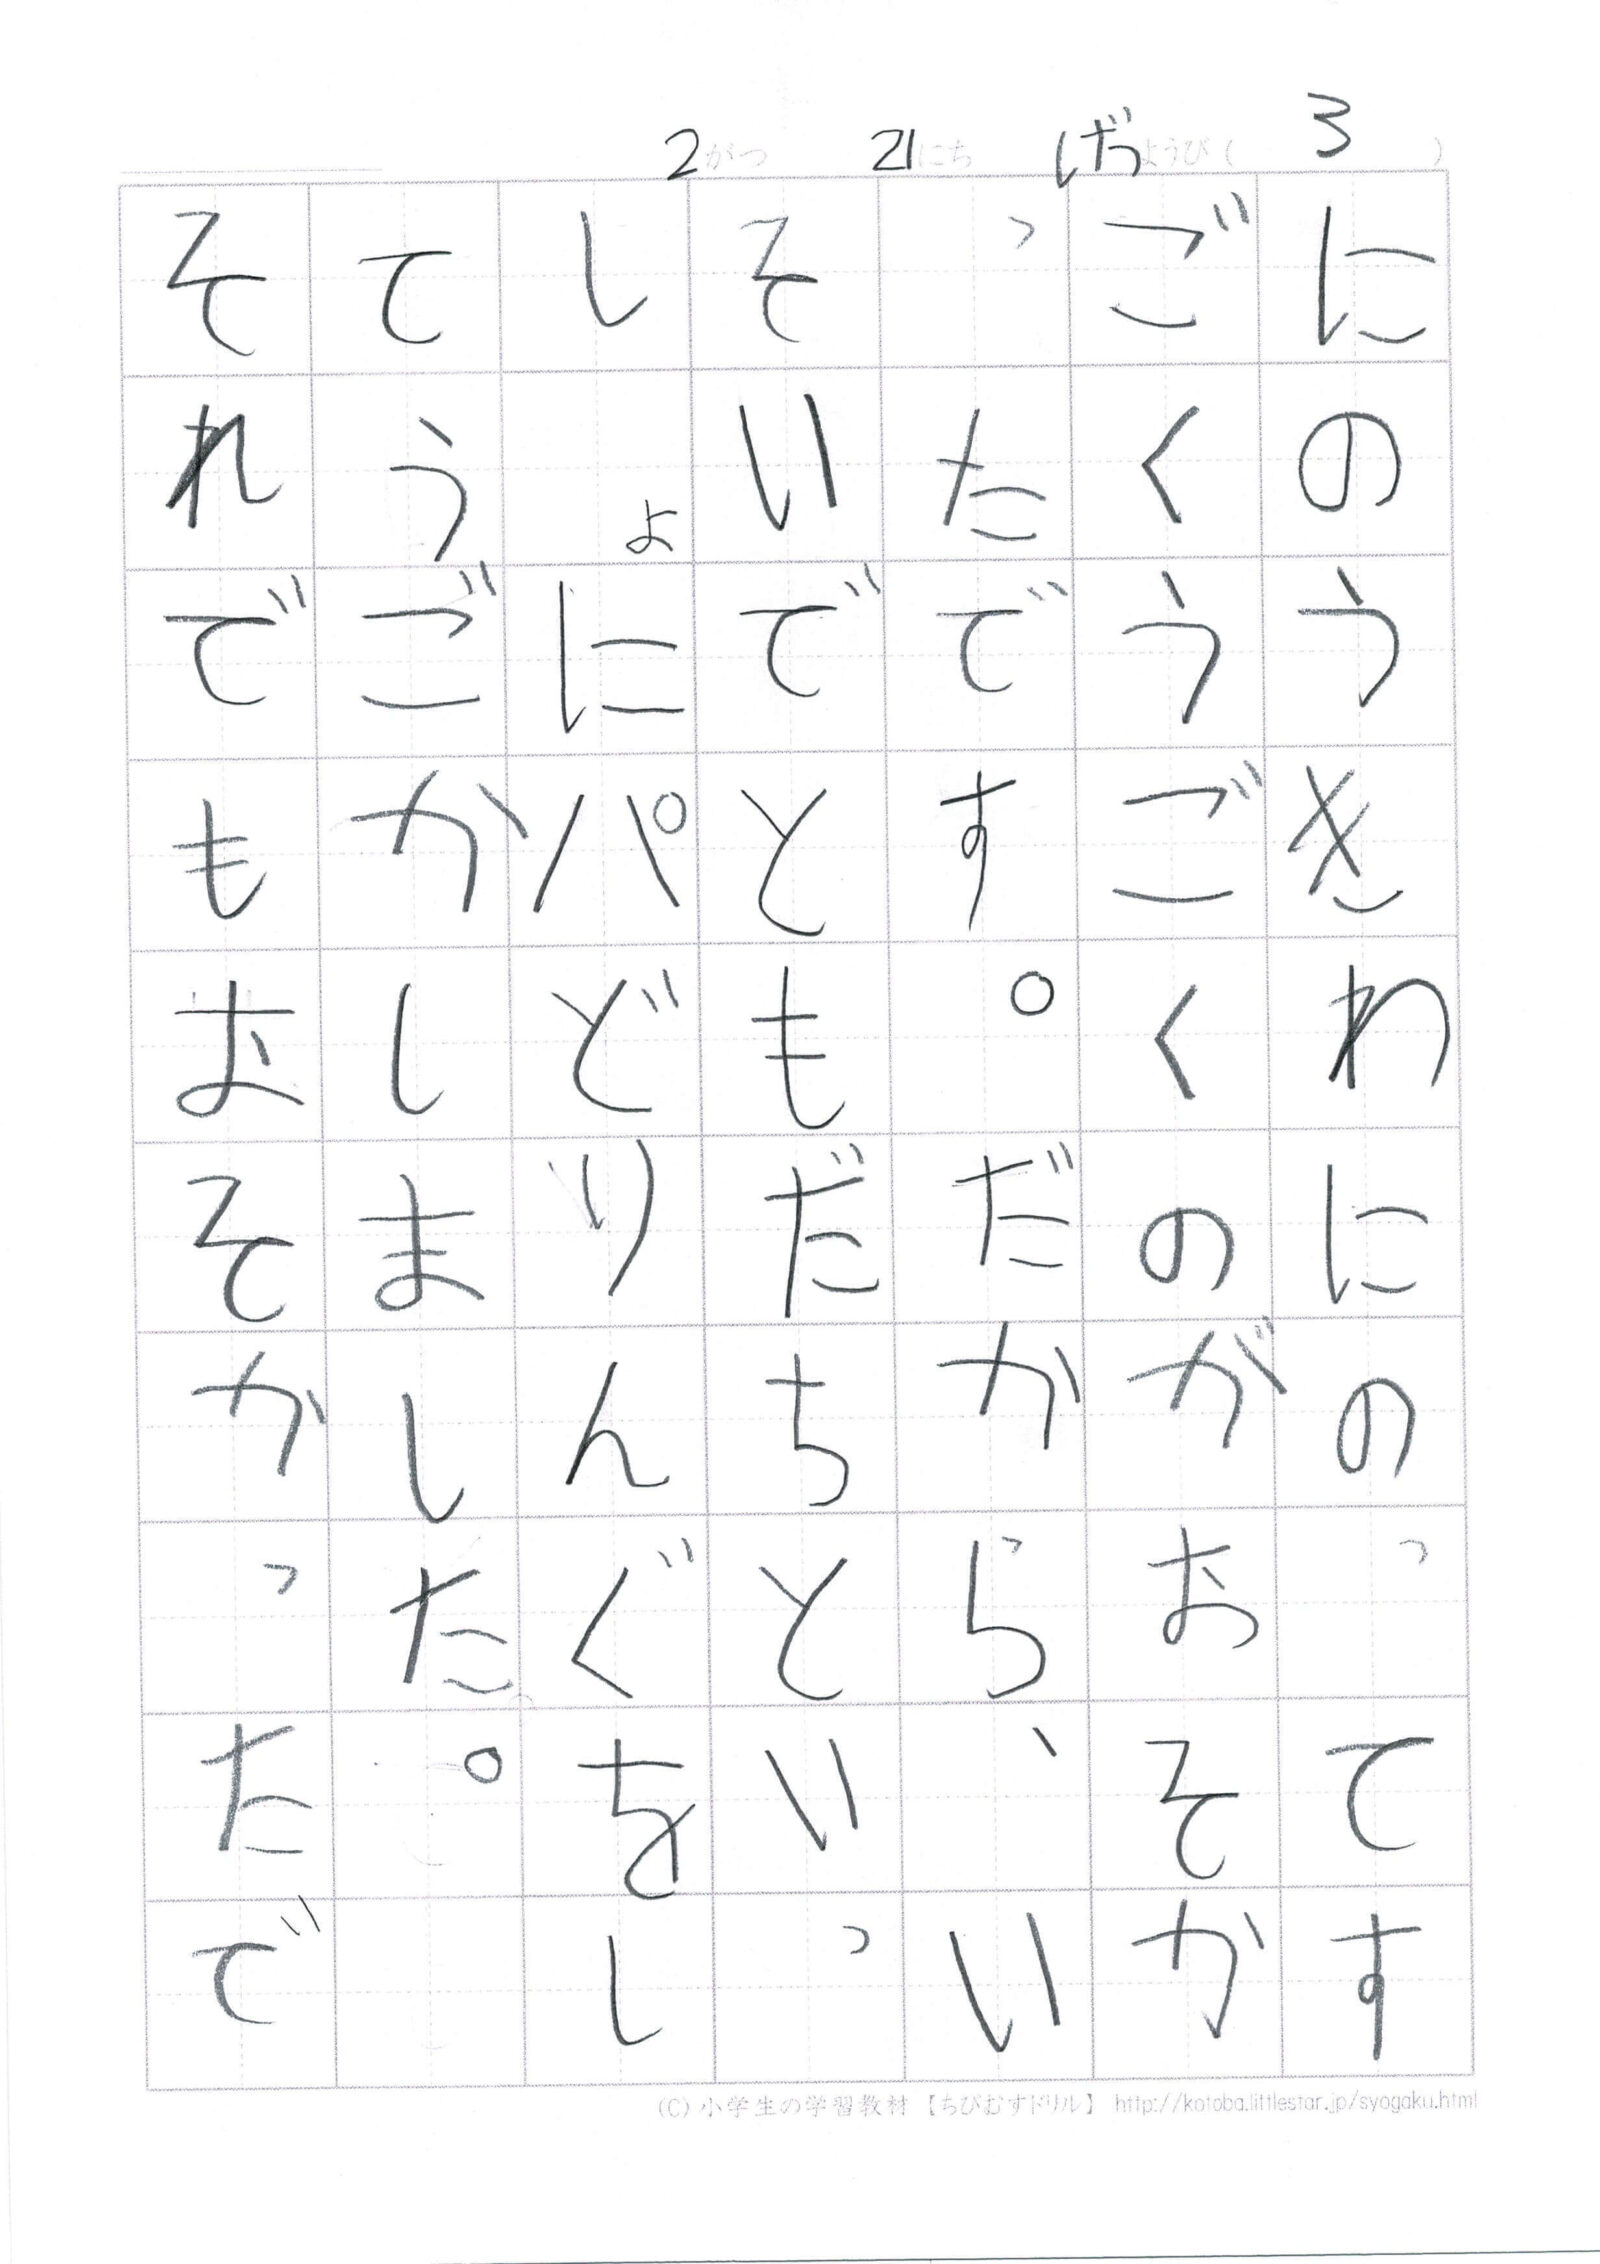 2がつ 21にち げつようび( 3 )
にのうをわにのってす
ごくうごくのがおそか
ったです。だから、い
そいでともだちといっ
しょにパどりんぐをし
てうごかしました。
それでもおそかったで
(C) 小学生の学習教材 【ちびむすドリル】 http://kotoba.littlestar.jp/syogaku.html